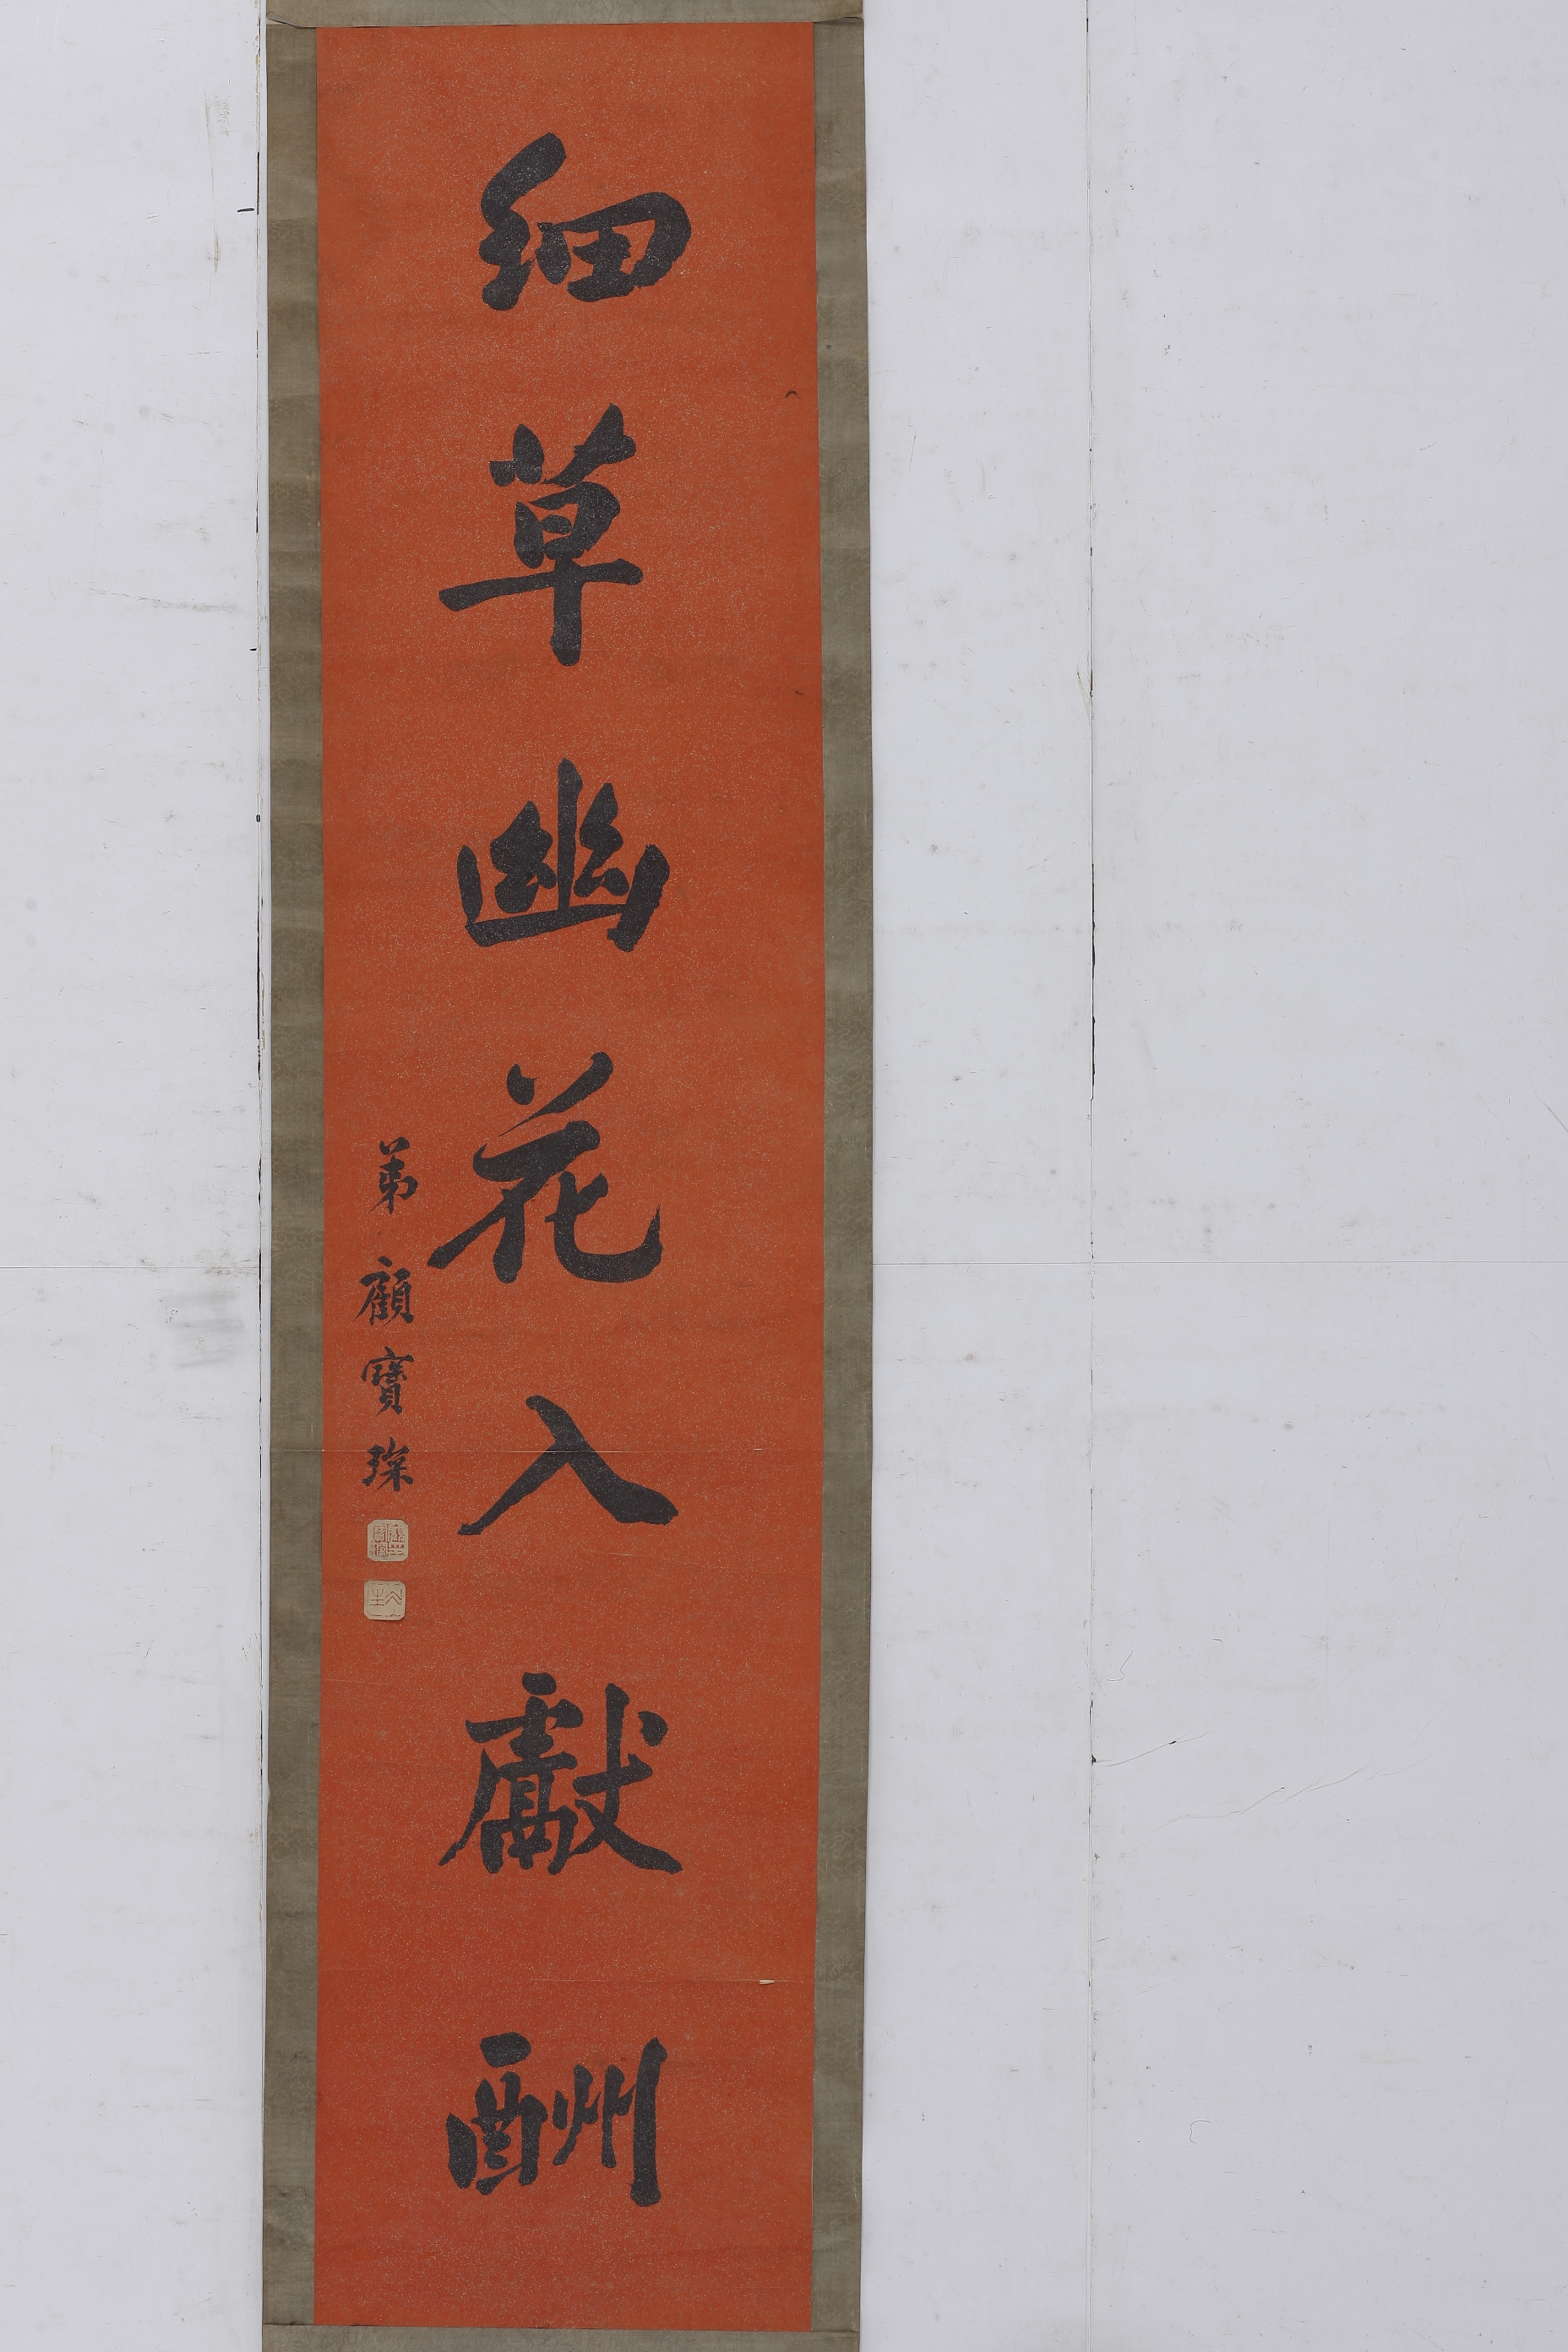 細草幽花入獻酬
弟顧寶琛